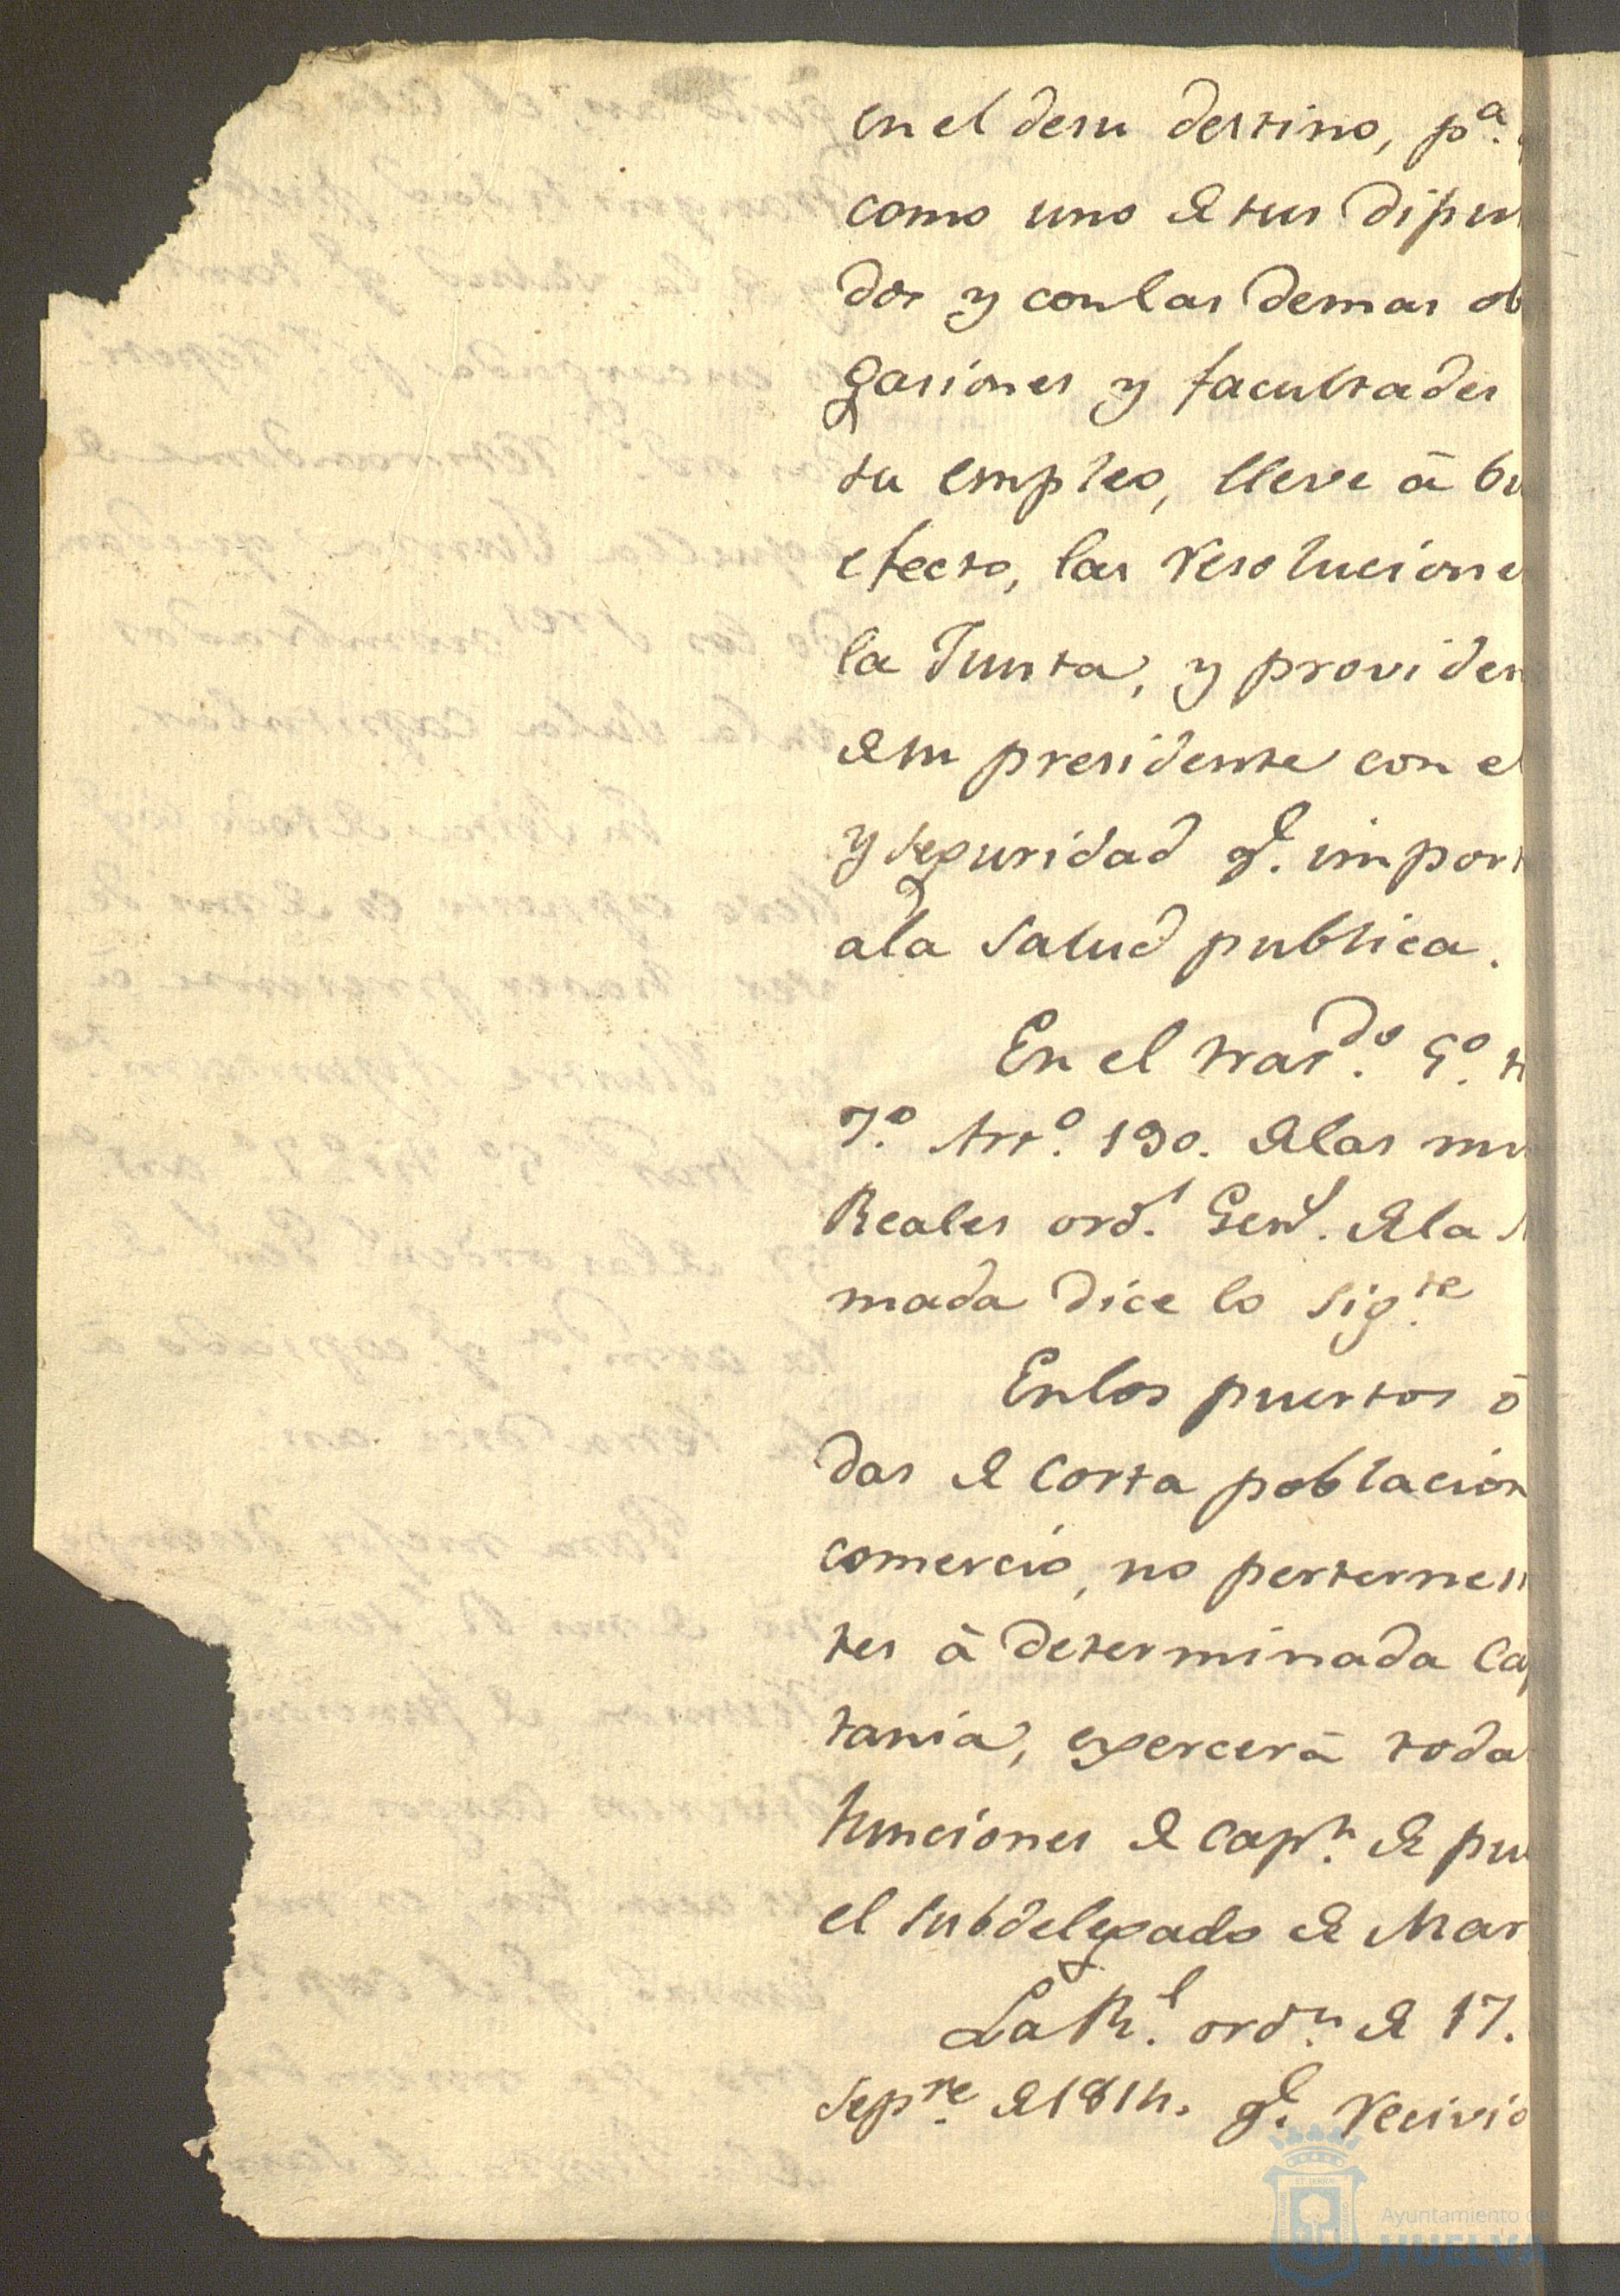 en el desu destino, pª.
como uno de sus dipu
dos y con las demas ob
gasiones y facultades
su empleo, lleve á bu
efecto, las resolucione
la Junta, y providen
desu presidente con el
y seguridad qe. impor
ala salud publica.
En el tratdo. 5º. ti
7.º Artº. 190. delas mis
Reales ord.s Genl. dela A
mada dice lo sig.te
Enlos puertos ó
das de corta poblacion
comercio, no pertenen
tes á determinada Cap
tania, exercerá toda
funciones de capn. de pu
el subdelegado de Mar
La Rl. ordn. de 17.
Sepre. de 1814. qe. recivio
Ayuntamiento de
HUELVA